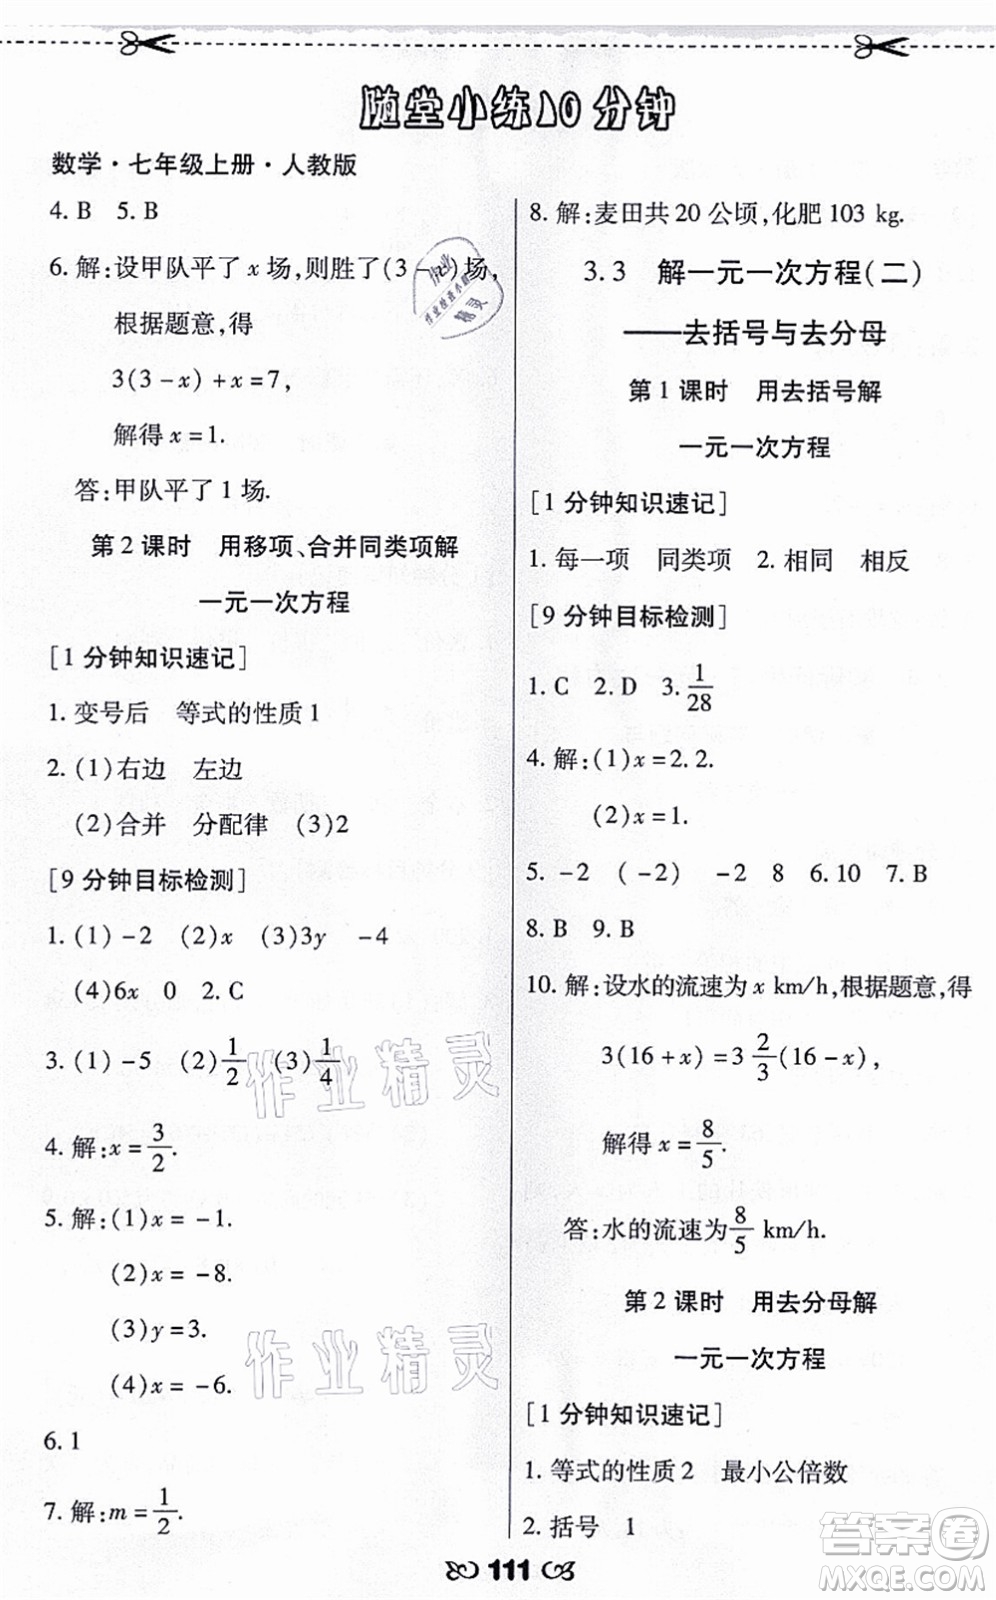 随堂小练10分钟
数学·七年级上册·人教版
4. B 5. B
6. 解:设甲队平了 x 场,则胜了(3-x)场,
根据题意,得
3(3-x)+x=7,
解得 x=1.
答:甲队平了 1 场.
第 2 课时 用移项、合并同类项解
一元一次方程
[1 分钟知识速记]
1. 变号后 等式的性质 1
2. (1)右边 左边
(2)合并 分配律 (3)2
[9 分钟目标检测]
1. (1) -2 (2)x (3)3y -4
(4)6x 0 2. C
3. (1) -5 (2)1/2 (3)1/4
4. 解:x=3/2.
5. 解:(1)x= -1.
(2)x= -8.
(3)y=3.
(4)x= -6.
6. 1
7. 解:m=1/2.
8. 解:麦田共 20 公顷,化肥 103 kg.
3.3 解一元一次方程(二)
——去括号与去分母
第 1 课时 用去括号解
一元一次方程
[1 分钟知识速记]
1. 每一项 同类项 2. 相同 相反
[9 分钟目标检测]
1. C 2. D 3. 1/28
4. 解:(1)x=2.2.
(2)x=1.
5. -2 (-2) -2 8 6. 10 7. B
8. B 9. B
10. 解:设水的流速为 x km/h,根据题意,得
3(16+x)=3 2/3(16-x),
解得 x=8/5.
答:水的流速为8/5 km/h.
第 2 课时 用去分母解
一元一次方程
[1 分钟知识速记]
1. 等式的性质 2 最小公倍数
2. 括号 1
111
作业精灵
作业精灵
答案圈
MXQE.COM